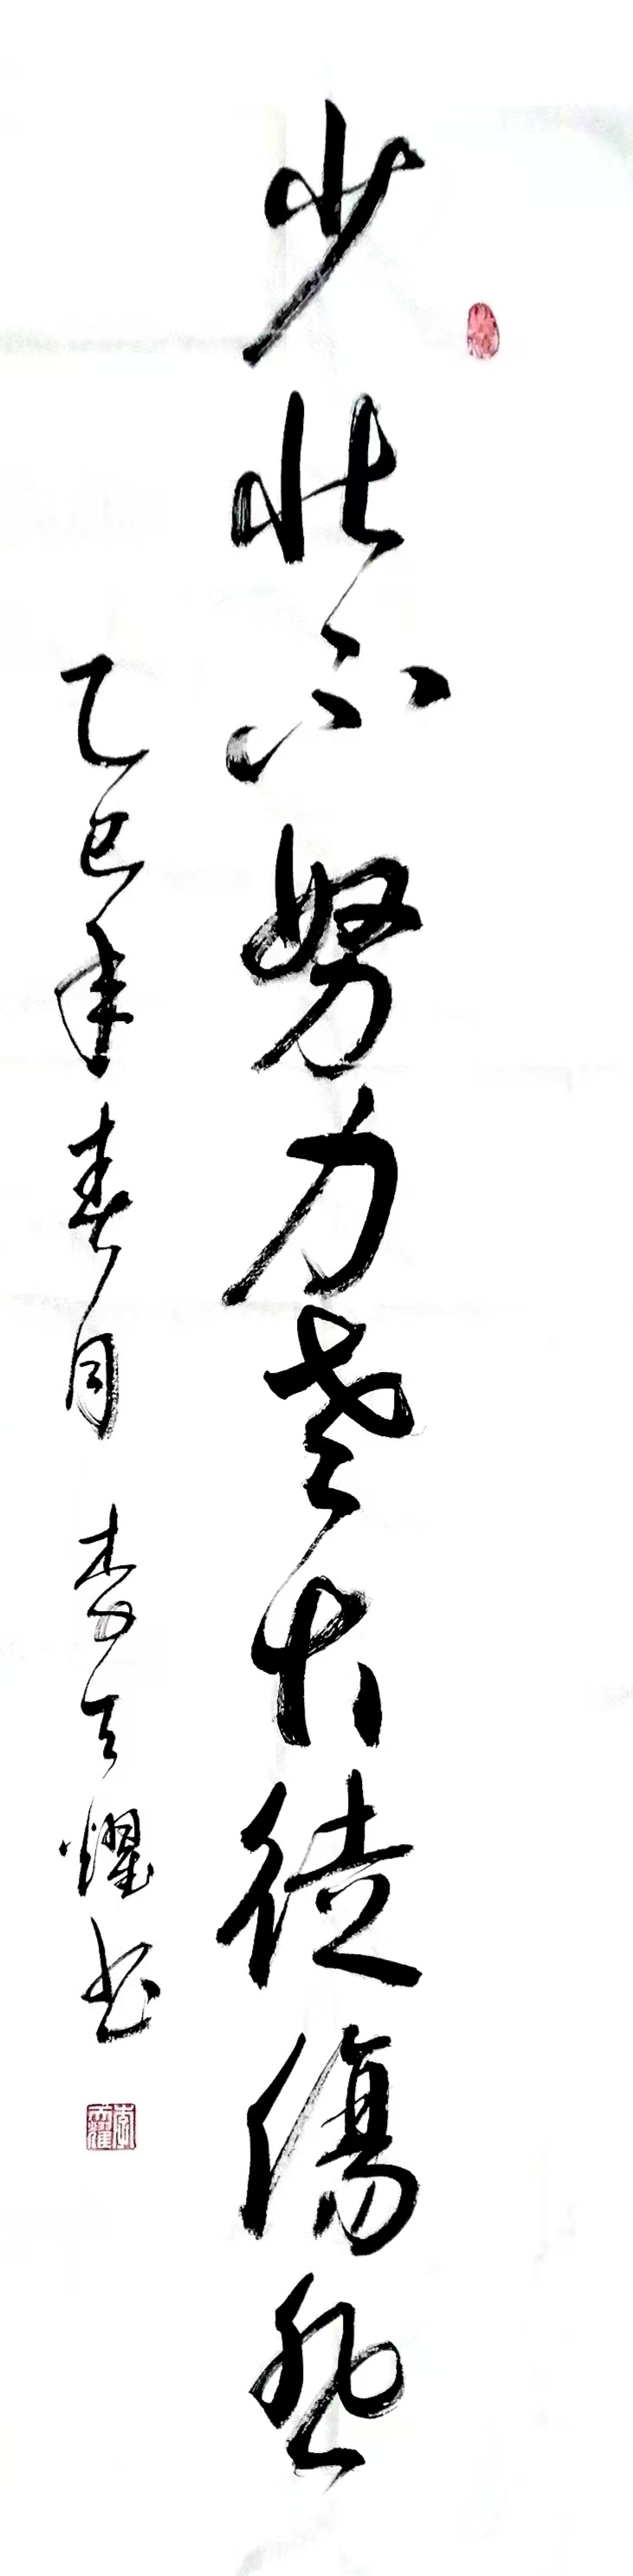 少壮不努力老大徒傷悲
乙巳年春月 李天耀书